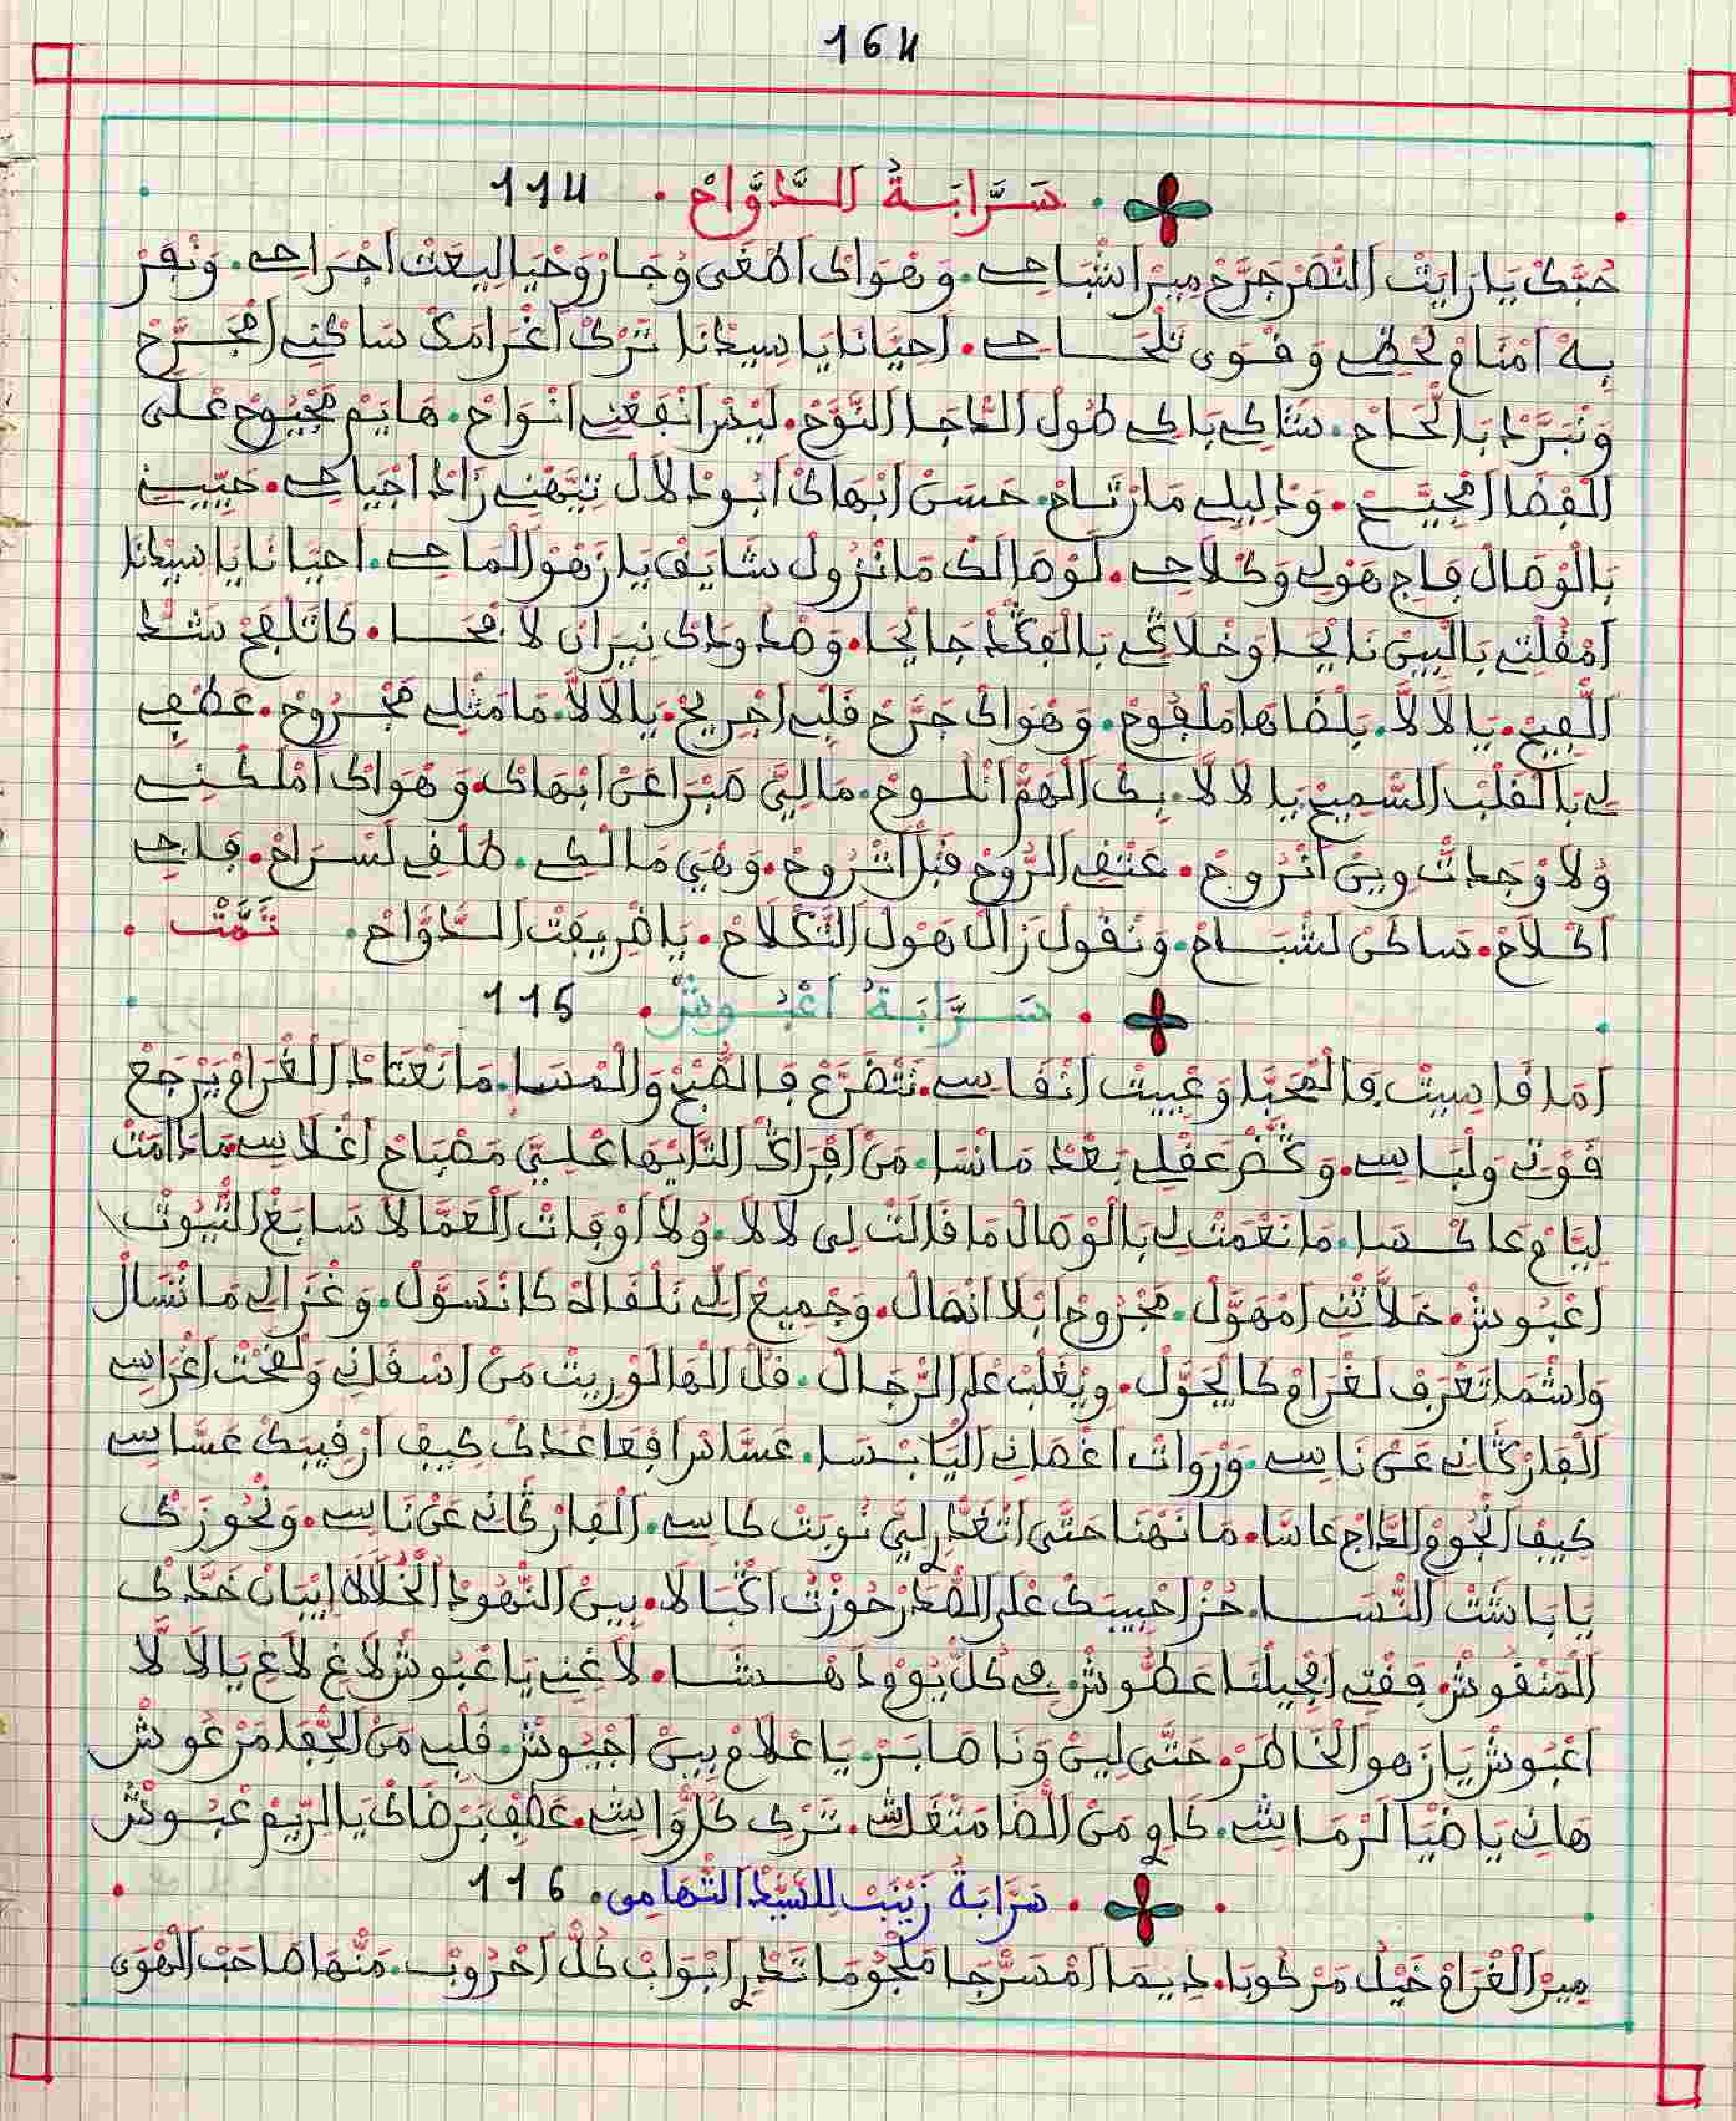 164
سَرَّابَةُ الدَّوَّاحْ . 114
حُبَّكْ يَا رَايَتْ النّْصَرْ جَرَّحْ مِيرْ اشْبَاحِي . وَهْوَاكْ اطْغَى وُجَارْ وَحْيَا لِيعَتْ اجْرَاحِي . وَنْفَرْ
بِهْ امْنَامْ لَحْظِي وَقْوَى تَلْحَاحِي . احْيَانَا يَا سِيدْنَا تَرْكْ اغْرَامَكْ سَاكْنِي امْجَرَّحْ
وَنْبَرَّدْ بَالْحَاحْ . شَاكِي بَاكِي طُولْ الدَّاجَا النَّوَّحْ . لِيسْ انْفَعْنِي انْوَاحْ . هَايَمْ مَجْيُوحْ عْلَى
الْفْضَا امْجَيَّحْ . وَدْلِيلِي مَا رْتَاحْ . حَسْنْ ابْهَاكْ ابُو دْلَالْ تِيَّهْنِي زَادْ اجْيَاحِي . حَيِّينِي
بَالْوْصَالْ فَاجِي هَوْلِي وَكْلَاحِي . لَوْصَالَكْ مَا نْزُولْ شَايَقْ يَا زَهْوْ الْمَاحِي . احْيَانَا يَا سِيدْنَا
امْقُلْتِي بَالْبِينْ نَايْحَا وخْلَاكِي بَالْفَكْدْ جَايْحَا . وَصْدُودَكْ نِيرَانْ لَافْحَا . كَاتَلْفَحْ شَدّْ
اللّْفِيحْ . يَا لَا لَّا . بَلْضَاهَا مَلْفُوحْ . وَهْوَاكْ جَرَّحْ قَلْبِي اجْرِيحْ . يَا لَا لَّا . مَا مَثْلِي مَجْرُوحْ . عَطْفِي
لِي بَالْقَلْبْ السّْمِيحْ يَا لَا لَّا . بِكْ الْهَمّْ انْلُوحْ . مَا لِيَّ صَبْرَا عَنْ ابْهَاكْ . وَهْوَاكْ امْلَكْنِي
وُلَا وْجَدْتْ وِينْ انْرُوحْ . عَتْقِي الرُّوحْ قَبْلْ اتْرُوحْ . وَهْيَ مَالْكِي . طَلْقِي لَسْرَاحْ . فَاجِي
اكْلَاحْ . سَاكَنْ لَشْبَاحْ . وَنْقُولْ زَالْ هَوْلْ التَّكْلَاحْ . يَا ضْرِيفَتْ الدَّوَّاحْ . تَمَّتْ .
سَرَّابَةُ اعْبُوشْ . 115
امَا قَاسِيتْ فَالْمْحَبَّا وَعْيِيتْ انْفَاسِي . نَتْضَرَّعْ فَالصّْبَحْ وَالْمْسَا . مَا نَعْتَادْ الْغْرَامْ يَرْجَعْ
قَوْتِي وَلْبَاسِي . وَكْضَرْ عَقْلِي بَعْدْ مَا نْسَا . مَنْ افْرَاكْ التَّايْهَا عْلِيَّ مَصْبَاحْ اغْلَاسِي مَا دَامَتْ
لِيَّامْ عَاكْسَا . مَا نَعْمَتْ لِي بَالْوْصَالْ مَا قَالَتْ لِي لَا لَا . وُلَا اوْفَاتْ الْعَمَّالَا سَابَغْ التّْيُوتْ
اعْبُوشْ . خَلَّاتْنِي امْهَوَّلْ . مَجْرُوحْ ابْلَا انْصَالْ . وَجْمِيعْ الِّي نَلْقَاهْ كَانْسَوَّلْ . وَغْزَالِي مَا تْسَالْ
وَاشْ مَا تَعْرَفْ لَغْرَامْ كَا يْحَوَّلْ . وِيغْلَبْ عْلَى الرّْجَالْ . قُلْ الْهَا لَوْ رِيتْ مَنْ اسْقَانِي وَلَقَّحْتْ اغْرَاسِي
الْفَارَكَّانِي عَنْ نَاسِي . وَرْوَاتْ اغْصَانِي الْيَابْسَا . عَسَّاسْ افْعَاعَدَكْ كِيفْ ارْقِيبَكْ عَسَّاسِي
كِيفْ انْجُومْ الدَّاجْ عَاسَّا . مَا نَهْنَا حَتَّى اتْغَدَّرْ لِيَّ نُوبَتْ كَاسِي . الْفَارَكَّانِي عَنْ نَاسِي . وَنْحُوزَكْ
يَا بَاشَتْ النّْسَا . حُزْ احْبِيبَكْ عْلَى الصّْدَرْ حُوزَتْ اكْبَالَا . بِينْ النّْهُودْ الْخَلَّالَا ايْبَانْ خَدَّكْ
الْمَنْقُوشْ . قَقْتِي امْجِيلْنَا عَطُّوشْ فِي كُلّْ يُومْ دَاهْشَا . لَاغِينِي يَا عْبُوشْ لَاغِ لَاغِ يَا لَا لَّا
اعْبُوشْ يَا زَهْو الْخَاطَرْ . حَتَّى لِينْ وَنَا صَابَرْ . يَا عْلَامْ بِينْ اجْيُوشْ . قَلْبِي مَنْ الْجْفَا مَرْعُوشْ
هَانِي يَا ضْيَا لَرْمَاشِي . كَاوِي مَنْ الضَّا مَتْقَاشِي . تَرْكِي كُلّْ وَاشِي . عَطْفِي بَرْضَاكْ يَا الرِّيمْ عْبُوشْ
سَرَّابَةُ زَيْنَبْ لِلسَّيِّدْ التّْهَامِي . 116
مِيرْ الْغْرَامْ خَيْلُ مَرْكُوبَا . دِيمَا امْسَرّْجَا مَلْجُومَا تَدْرِي ابْوَابْ كُلّْ احْرُوبْ . مَنْهَا صَاحَبْ الْهْوَى